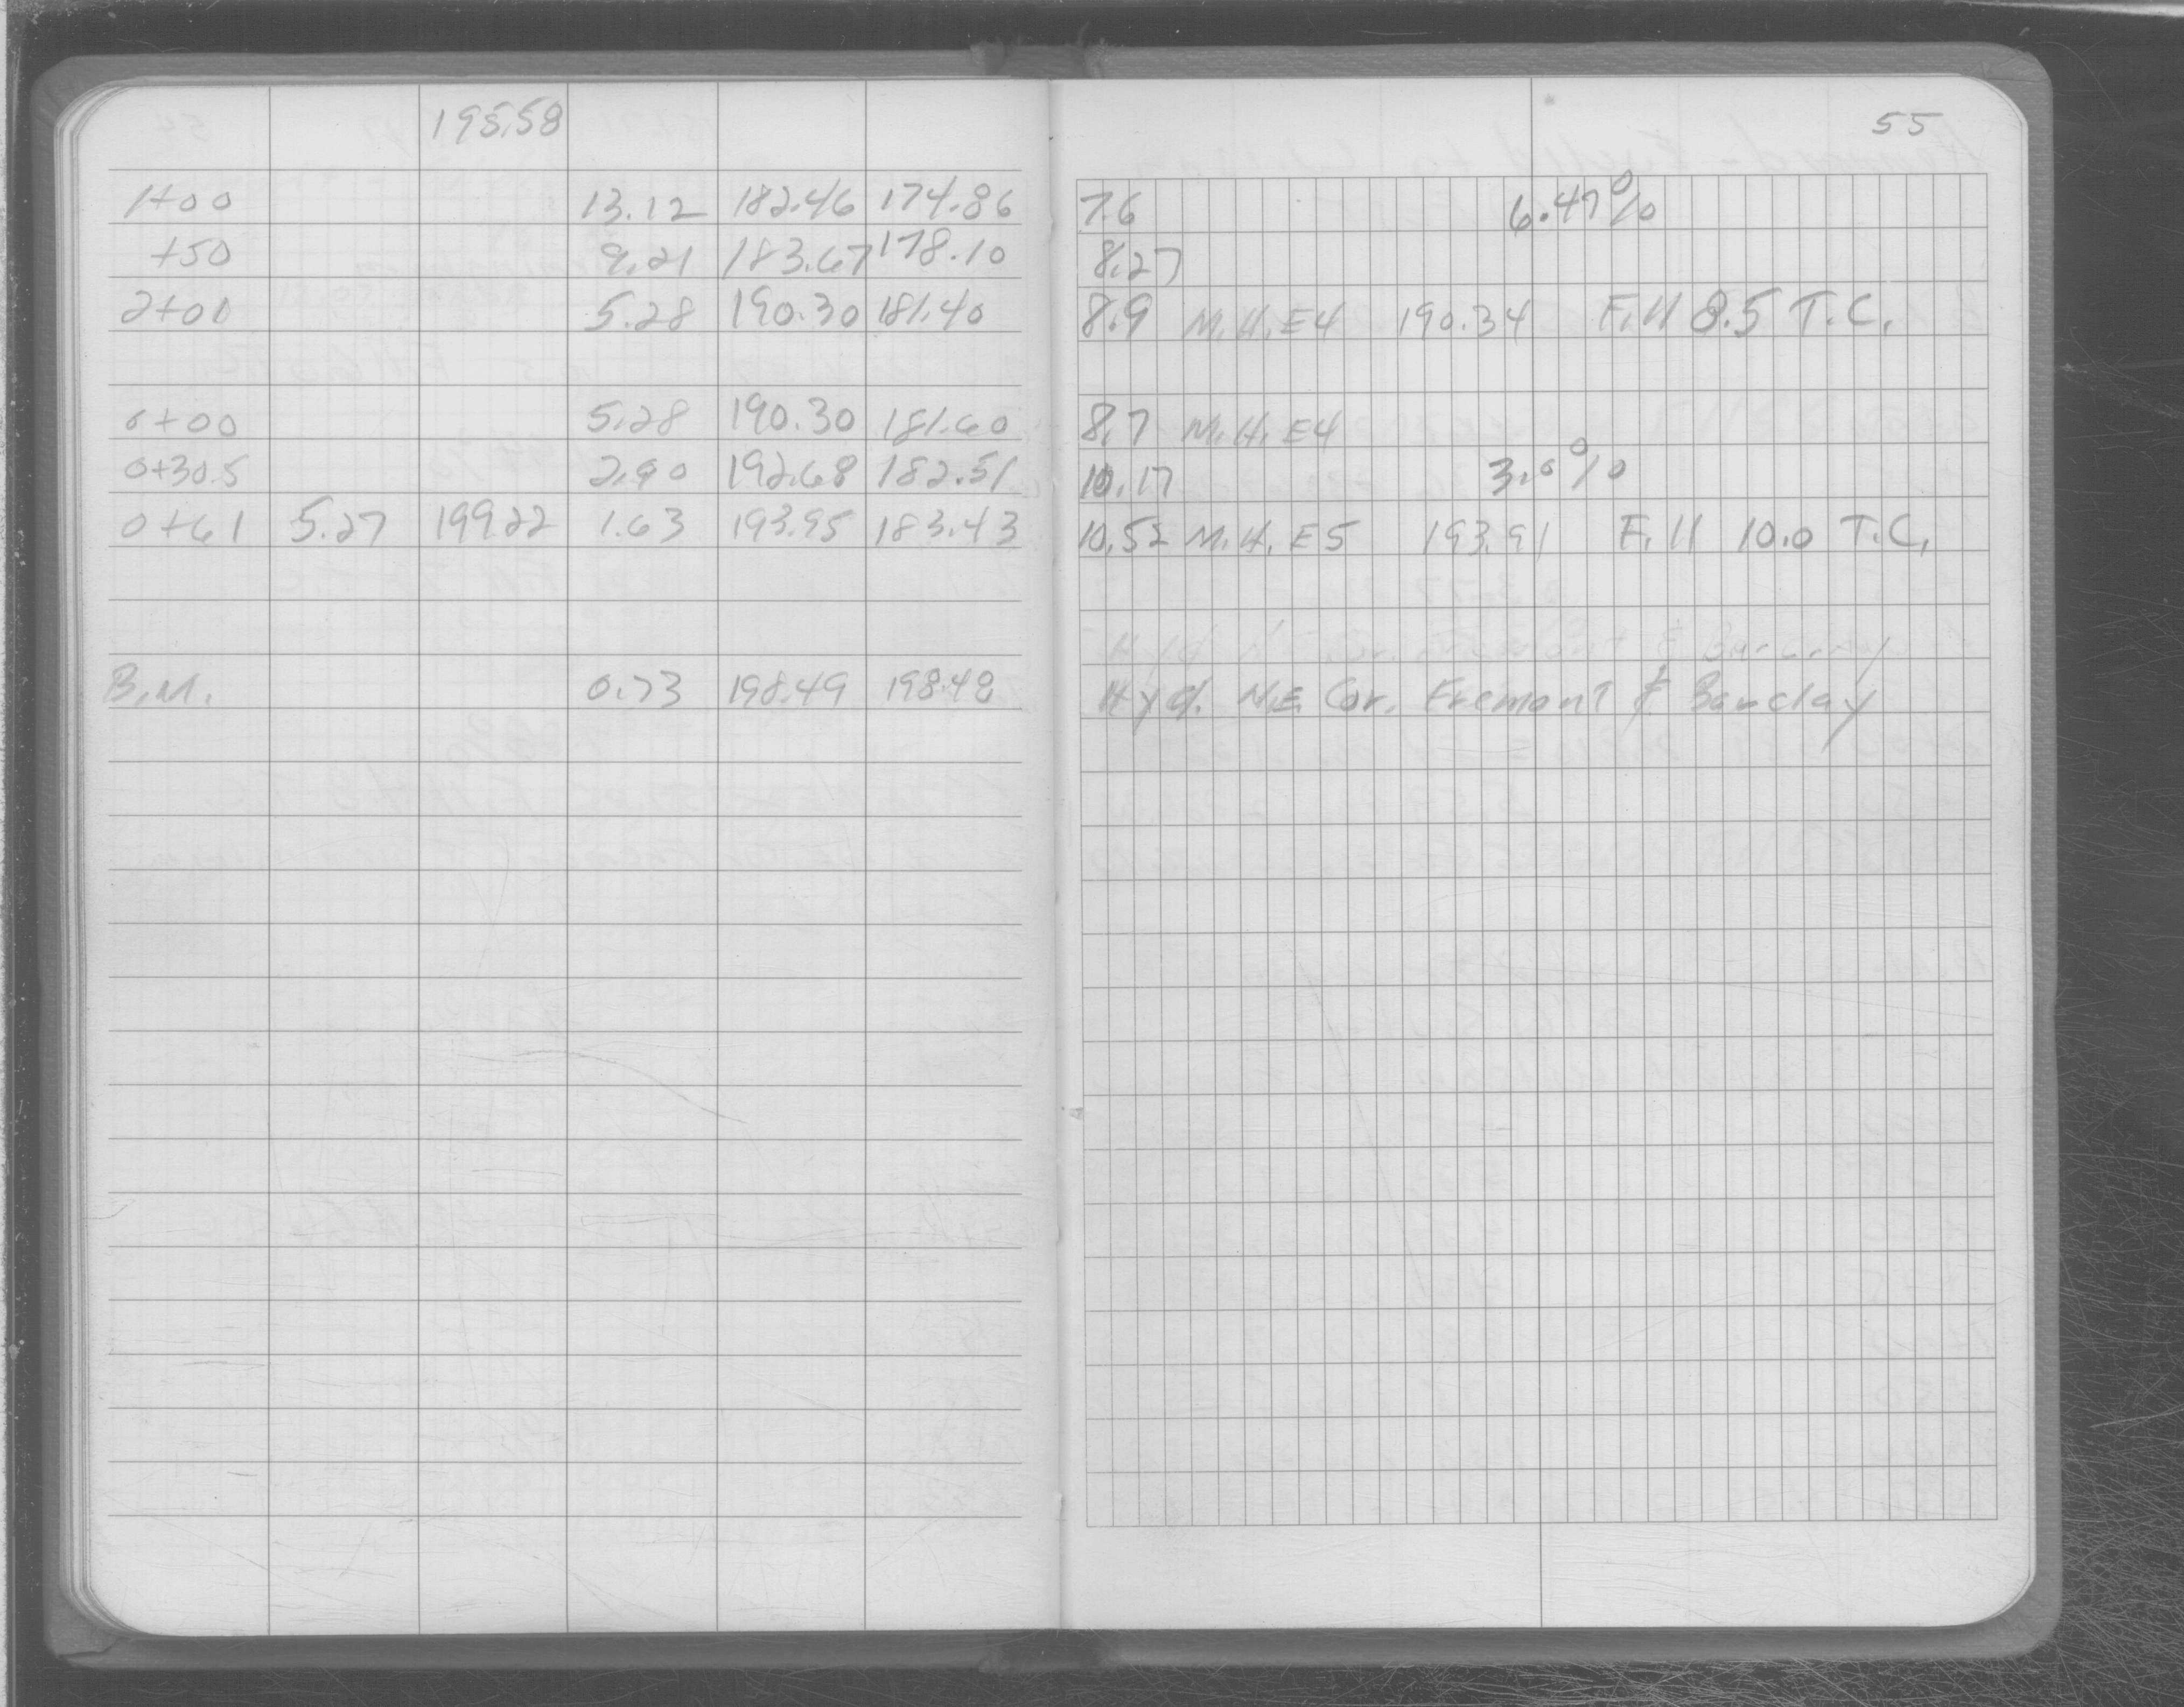 195.58
55
1+00 13.12 182.46 174.86 7.6 6.47%
+50 9.21 183.67 178.10 8.27
2+00 5.28 190.30 181.40 8.9 M.H. E4 190.34 Fill 8.5 T.C.
0+00 5.28 190.30 181.60 8.7 M.H. E4
0+30.5 2.90 192.68 182.51 10.17 3.0%
0+61 5.27 199.22 1.63 193.95 183.43 10.52 M.H. E5 193.91 Fill 10.0 T.C.
B.M. 0.73 198.49 198.48 Hyd. N.E. Cor. Fremont & Barclay